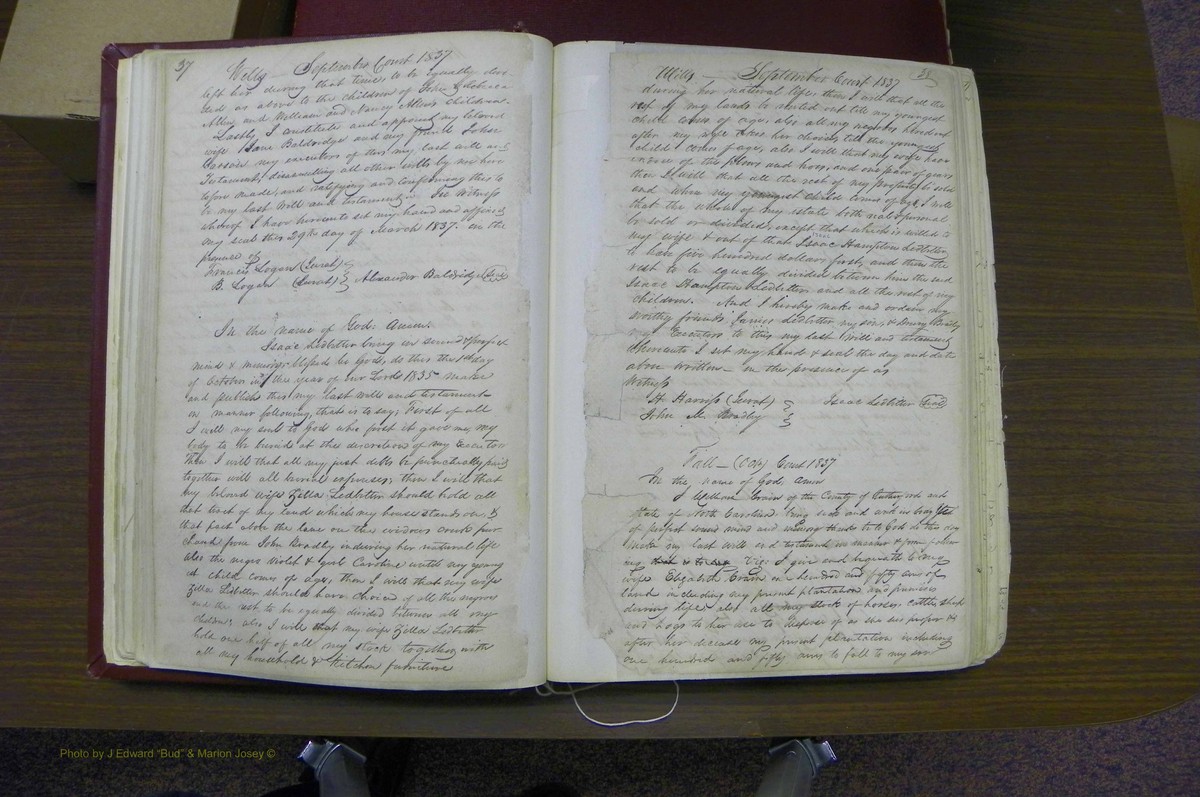 37 Wills — September Court 1837
left her during that time, to be equally divi-
ded as above to the children of John & Rebecca
Allen and William and Nancy Allens children.
Lastly, I constitute and appoint my beloved
wife Jane Baldridge and my friend John
my executors of this my last will and
Testament, disannulling all other wills by me here
tofore made, and ratifying and confirming this to
be my last Will and testament. In Witness
whereof I have hereunto set my hand and affixed
my seal this 29th day of March 1837. in the
presence of
Francis Logan (Jurat)
B. Logan (Jurat) Alexander Baldridge (Seal)
In the name of God. Amen.
Isaac Ledbetter being in sound & perfect
mind & memory blessed be God, do this the 1st day
of October in the year of our Lord 1835 make
and publish this my last will and testament
in manner following, that is to say; First of all
I will my soul to God who first it gave me, my
body to be buried at the discretion of my Executors
Then I will that all my just debts be punctually paid
together will all burial expenses; then I will that
my beloved wife Zilla Ledbetter should hold all
that tract of my land which my house stands on, &
that part above the lane on the widows creek pur
chased from John Bradley induring her natural life
also the negroes Violet & girl Caroline until my young
est child comes of age, then I will that my wife
Zilla Ledbetter should have choice of all the negroes
and the rest to be equally divided between all my
children; also I will that my wife Zilla Ledbetter
hold one half of all my stock together with
all my household & Kitchen furniture
Wills — September Court 1837 28
during her natural life, then I will that all the
rest of my lands be rented out till my youngest
child comes of age, also all my negroes hired out
after my wife takes her choice, till the youngest
child comes of age, also I will that my wife have
one of the plows and horse, and one pair of gears
then I will that all the rest of my property be sold
and when my youngest child comes of age, I will
that the whole of my estate both real & personal
be sold or divided, except that which is willed to
my wife & out of that Isaac Hampton Ledbetter
to have five hundred dollars first, and then the
rest to be equally divided between him the said
Isaac Hampton Ledbetter and all the rest of my
children. And I hereby make and ordain my
worthy friends James Ledbetter my son, & Bradley
my Executors to this my last Will and testament
Whereunto I set my hand & seal the day and date
above written — in the presence of us
Witness
H. Harris (Jurat) Isaac Ledbetter (Seal)
John M. Bradley
Fall — (Oct) Court 1837
In the name of God, Amen
I William of the County of Rutherford and
State of North Carolina being sick and in body but
of perfect sound mind and memory thanks be to God do this day
make my last will and testament in manner & form follow
ing Viz: I give and bequeath to my
wife Elizabeth one hundred and fifty acres of
land including my present plantation and premises
during life also all my stock of horses, cattle, sheep
and hogs to her use to dispose of as she sees proper &
after her decease my present plantation including
one hundred and fifty acres to fall to my son
Photo by J Edward "Bud" & Marion Josey ©